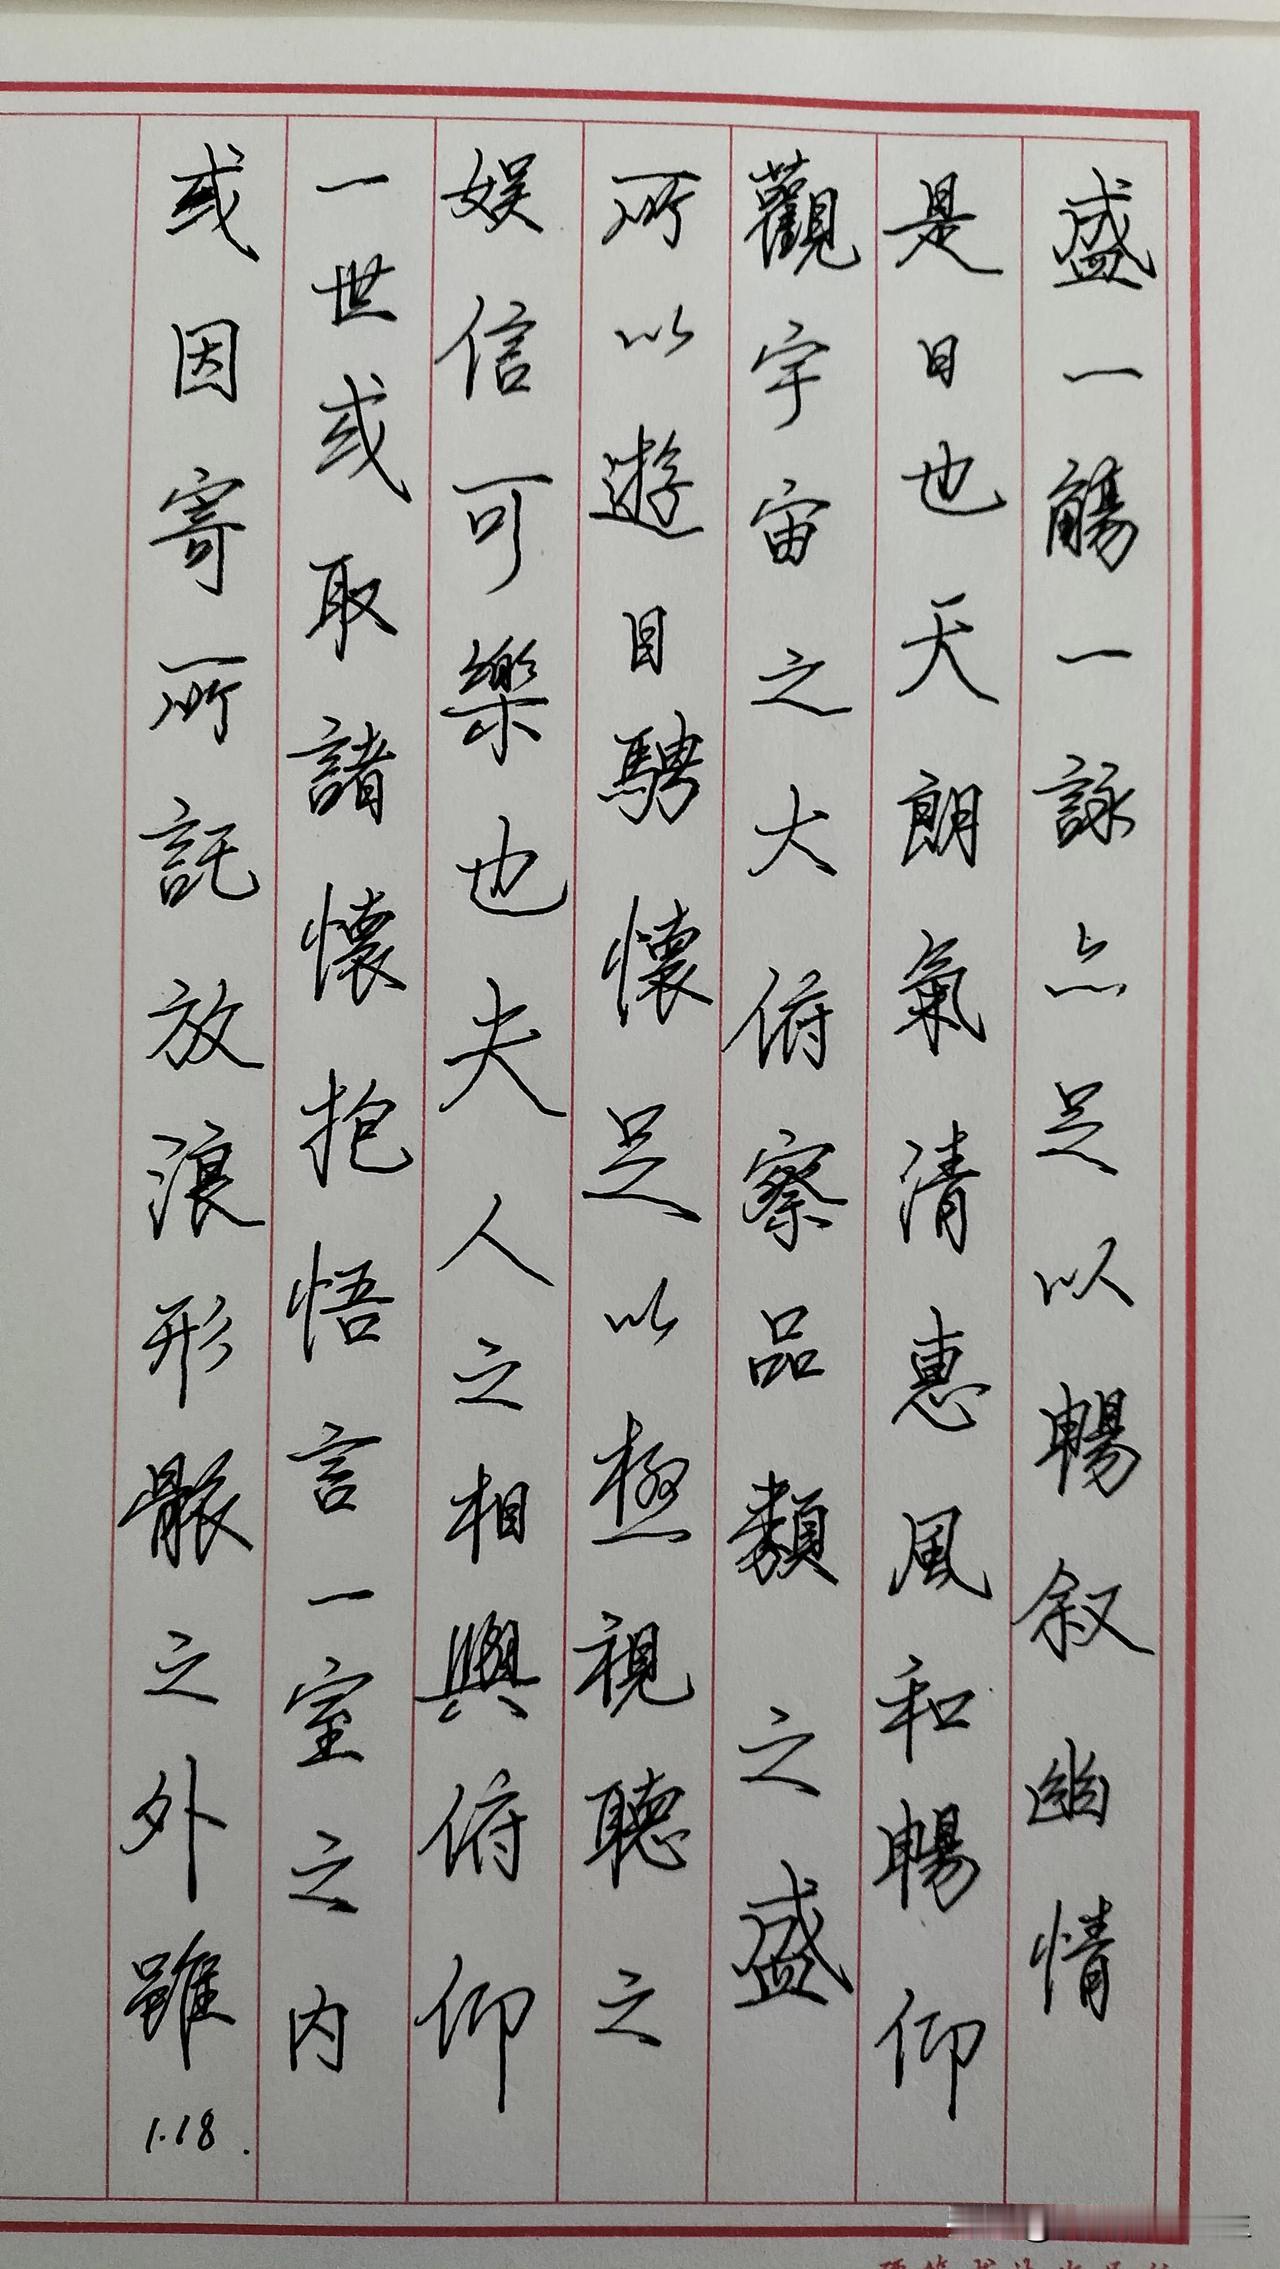 盛一觴一詠亦足以暢叙幽情
是日也天朗氣清惠風和暢仰
觀宇宙之大俯察品類之盛
所以遊目騁懷足以極視聽之
娱信可樂也夫人之相與俯仰
一世或取諸懷抱悟言一室之内
或因寄所託放浪形骸之外雖
1.18.